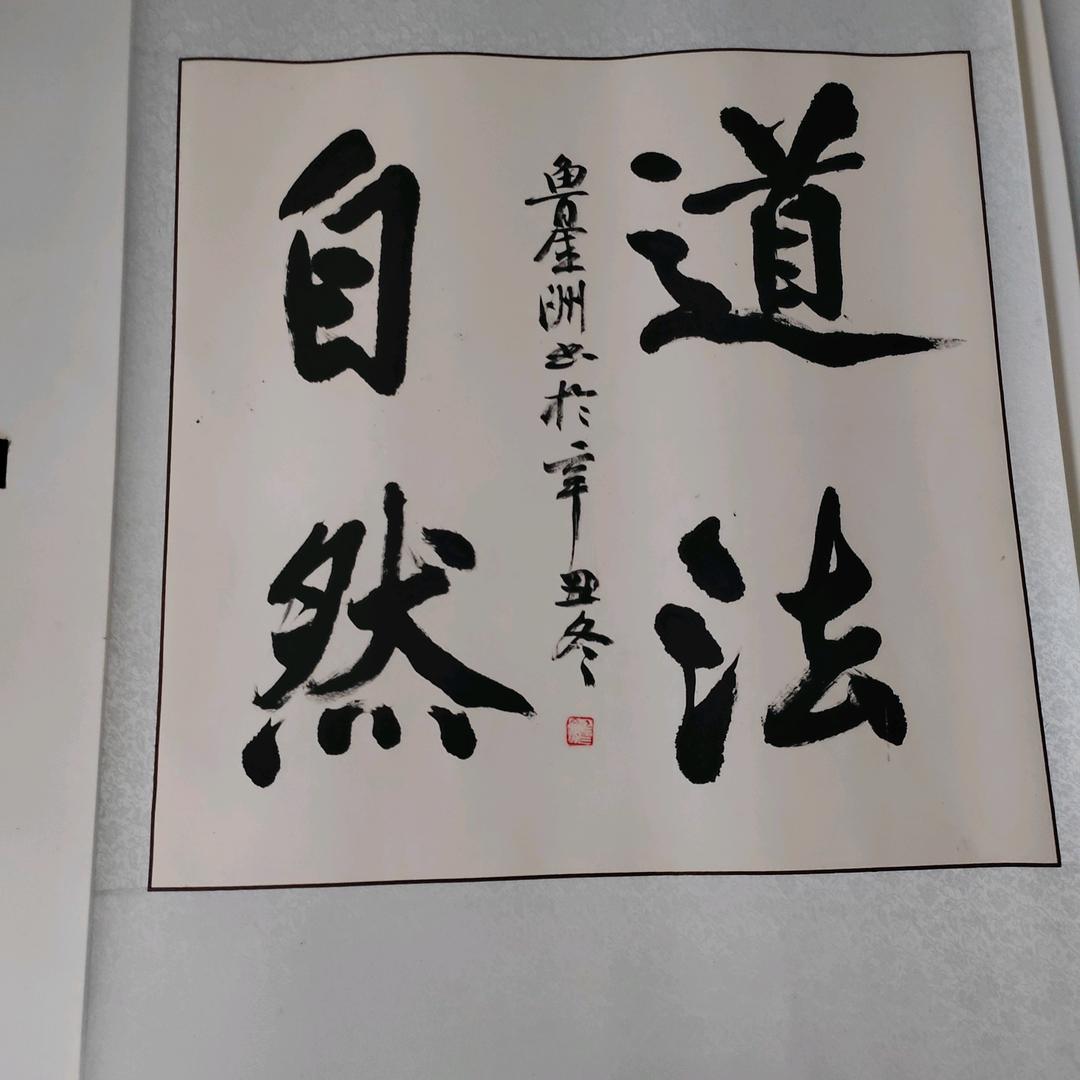 道法
自然
鲁星洲书於辛丑冬